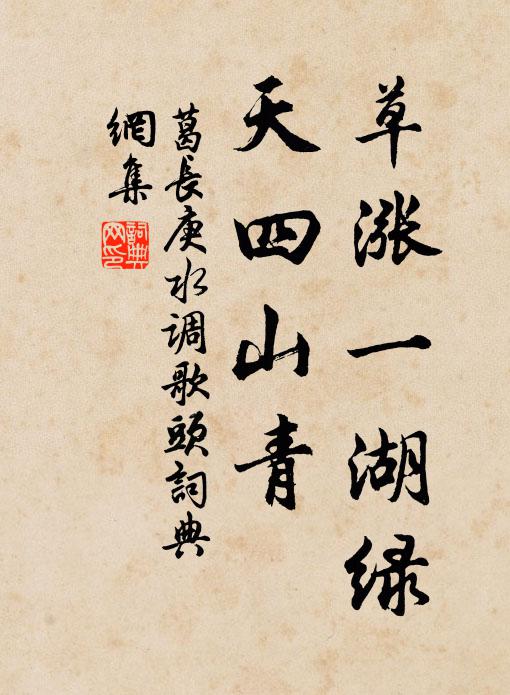 草漲一湖緑
天四山青
葛長庚水调歌頭詞典
網集
詞典网印